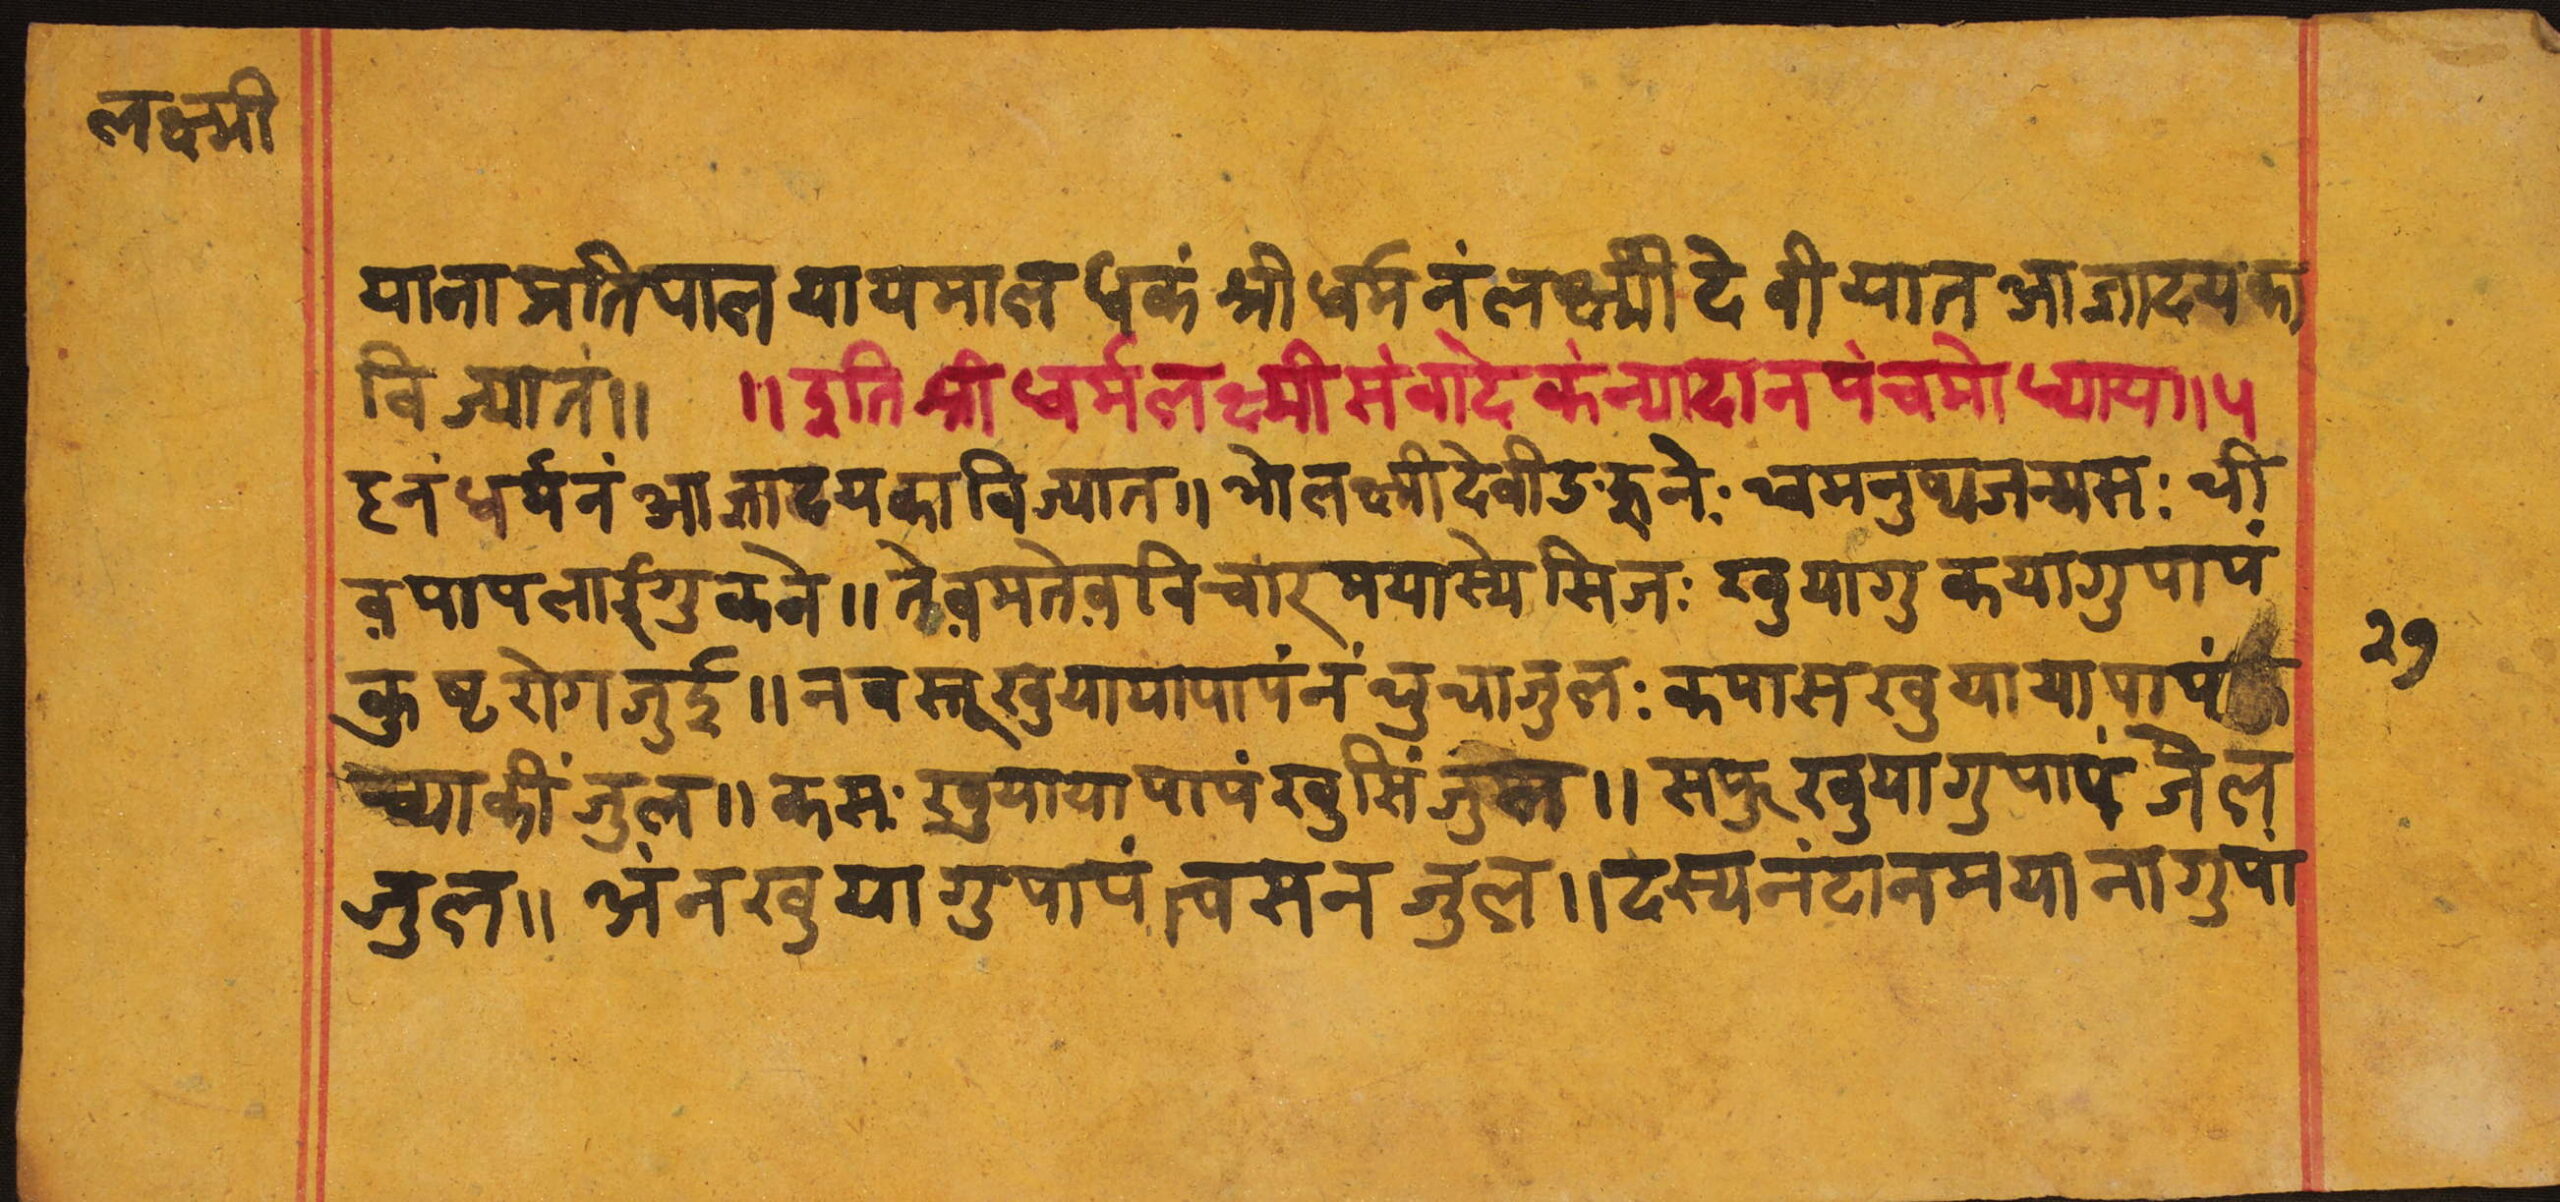 लक्ष्मी
याना प्रतिपाल यायमाल धकं श्री धर्म नं लक्ष्मी देवी यात आज्ञादयका
विज्यातं॥ ॥इति श्री धर्मलक्ष्मी संवादे कंन्यादान पंचमोध्याय॥५
हनं धर्मनं आज्ञादयका विज्यात॥ भो लक्ष्मीदेवी ङकुने: थ्व मनुष्यजन्मस: थी
व पाप लाईगु कने॥ तेव मतेव विचार मयास्ये मिज: खुयागु कयागु पापं
कुष्ट रोग जुई॥ नव स्तू खुयायापापं नं चुचाजुल: कपास खुयाया पापं
च्याकीं जुल॥ कम: खुयाया पापं खुसिं जुल॥ सफु खुयागु पापं जैल
जुल॥ अंन खुयागु पापं त्वसन जुल॥ दस्यनं दानमयानागु पा
२७